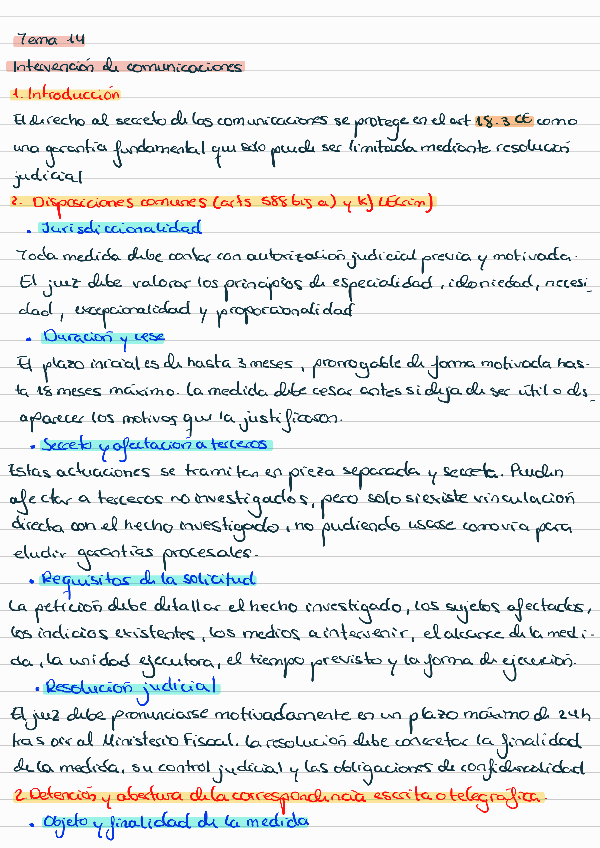 Tema 14
Intervención de comunicaciones
1. Introducción
El derecho al secreto de las comunicaciones se protege en el art 18.3 CE como
una garantía fundamental que solo puede ser limitada mediante resolución
judicial
2. Disposiciones comunes (arts 588 bis a) y k) LECrim)
• Jurisdiccionalidad
Toda medida debe contar con autorización judicial previa y motivada.
El juez debe valorar los principios de especialidad, idoniedad, necesi_
dad, excepcionalidad y proporcionalidad
• Duración y cese
El plazo inicial es de hasta 3 meses, prorrogable de forma motivada has-
ta 18 meses máximo. La medida debe cesar antes si deja de ser útil o des_
aparecer los motivos que la justificason.
• Secreto y afectación a terceros
Estas actuaciones se tramitan en pieza separada y secreta. Pueden
afectar a terceros no investigados, pero solo si existe vinculación
directa con el hecho investigado, no pudiendo usarse como vía para
eludir garantías procesales.
• Requisitos de la solicitud
La petición debe detallar el hecho investigado, los sujetos afectados,
los indicios existentes, los medios a intervenir, el alcance de la medi-
da, la unidad ejecutora, el tiempo previsto y la forma de ejecución.
• Resolución judicial
El juez debe pronunciarse motivadamente en un plazo máximo de 24h
tras oir al Ministerio Fiscal. La resolución debe concretar la finalidad
de la medida, su control judicial y las obligaciones de confidencialidad
2. Detención y abertura de la correspondencia escrita o telegráfica.
• Objeto y finalidad de la medida